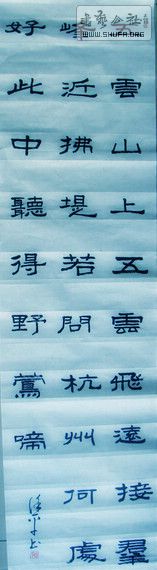 雲山上五雲飛遠接羣
峰近拂堤若問杭州何處
好此中聽得野鶯啼
WWW.SHUFA.ORG